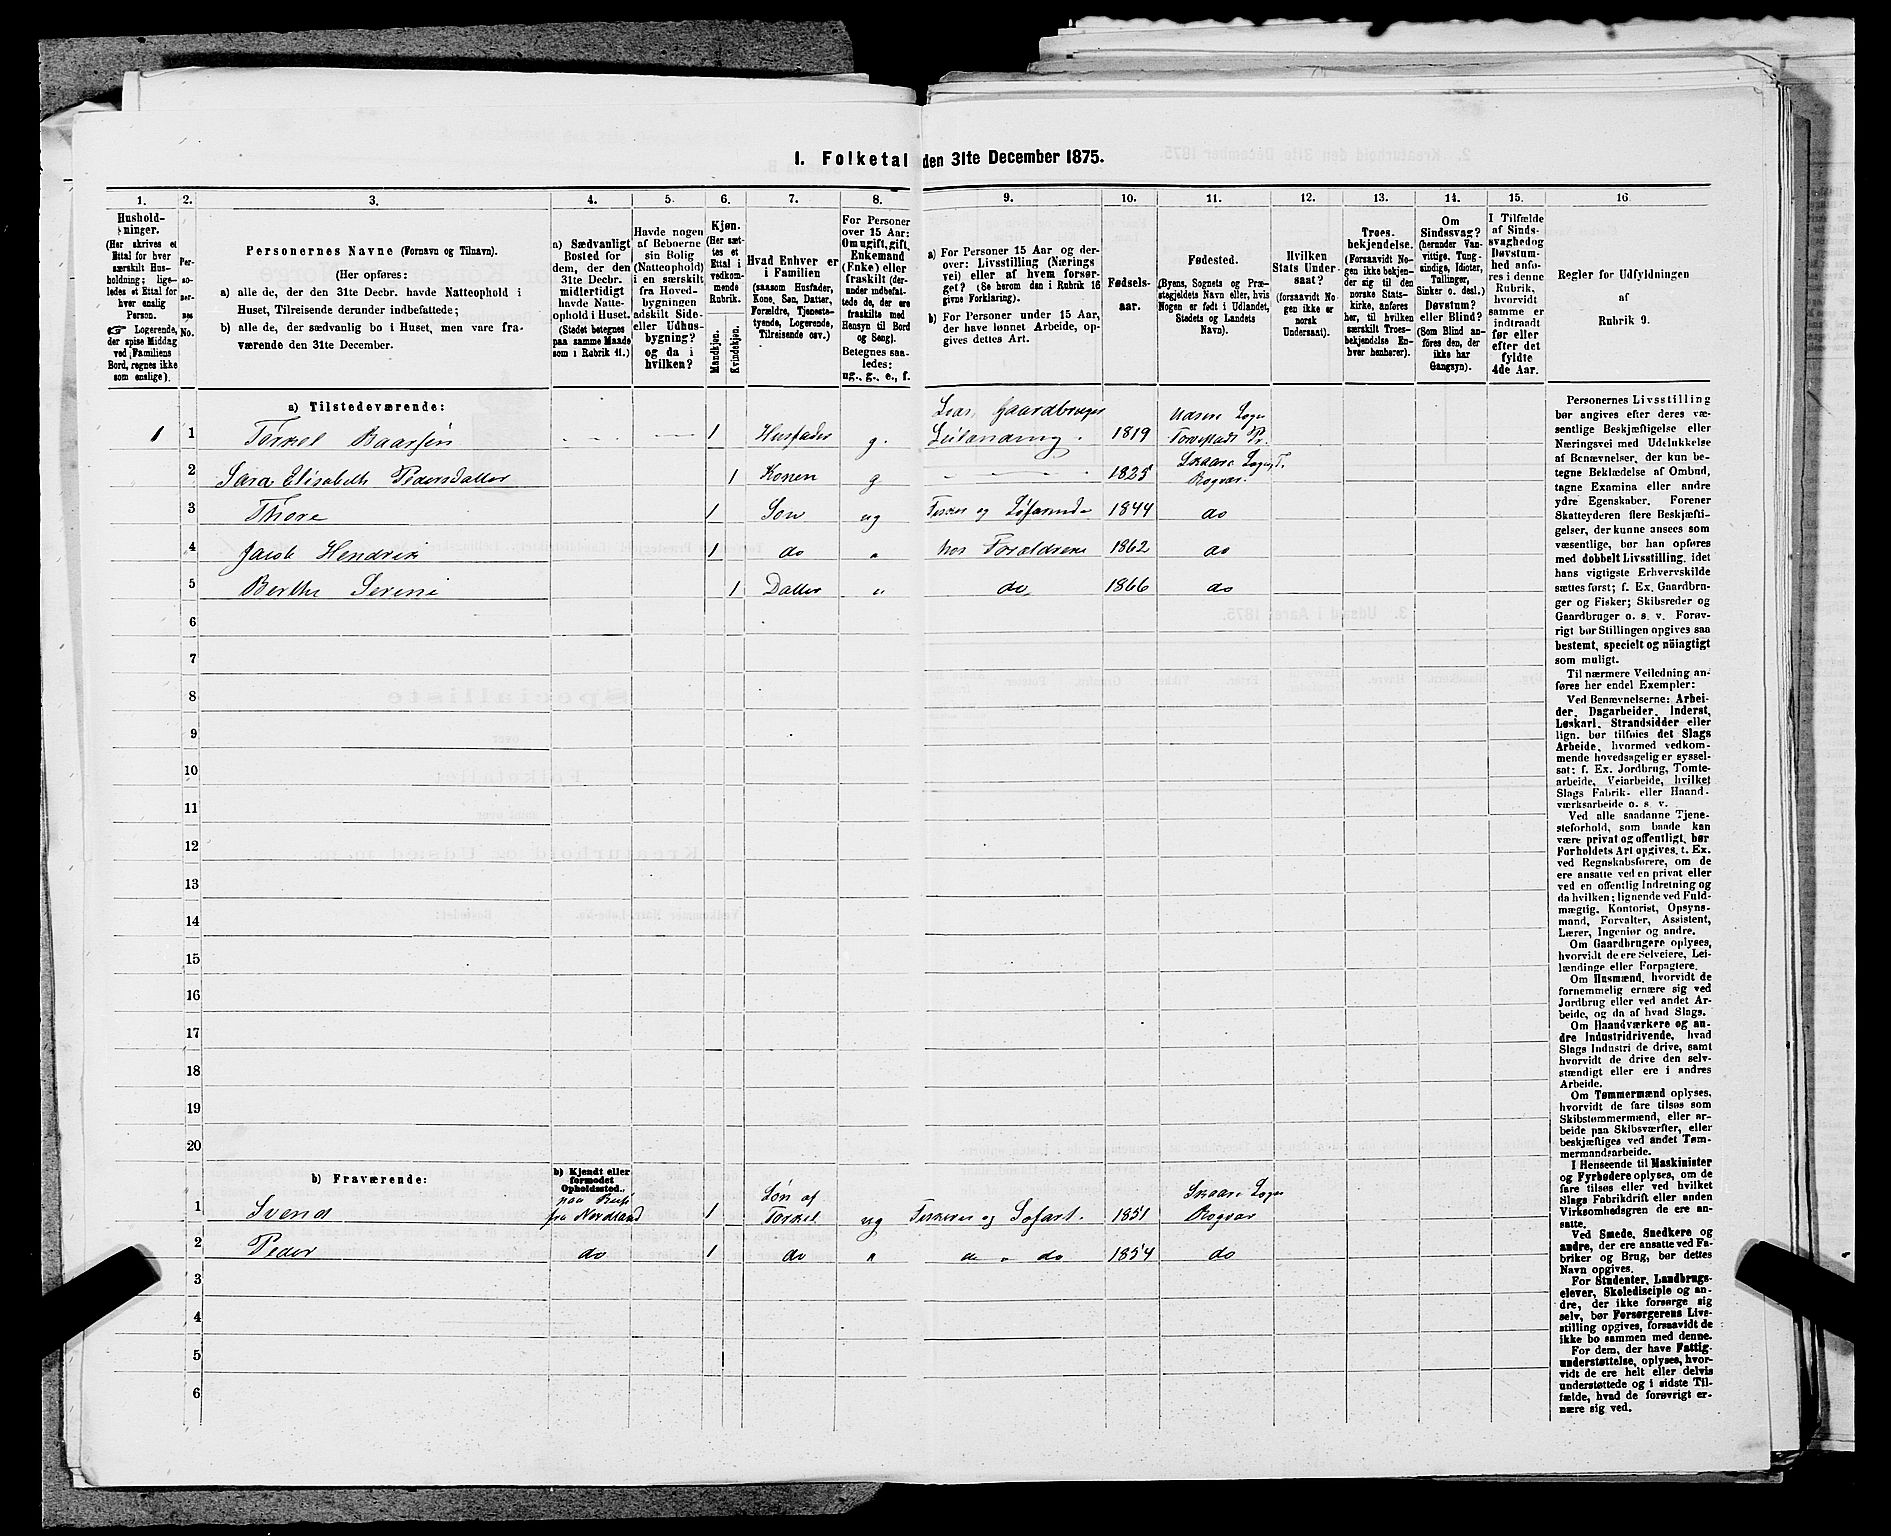 I. Folketal den 31te December 1875.
1.
2.
3.
4.
5.
6.
7.
8.
9.
10.
11.
12.
13.
14.
15.
16
Hushold-
ninger.
(Her skrives et
Ettal for hver
særskilt Hus-
holdning; lige-
ledes et Ettal for
hver enslig
Person.
Logerende,
der spise Middag
ved Familiens
Bord, regnes ikke
som enslige).
Per-
so-
ner-
nes
No.
Personernes Navne (Fornavn og Tilnavn).
(Her opføres:
a) alle de, der den 31te Decbr. havde Natteophold i
Huset, Tilreisende derunder indbefattede;
b) alle de, der sædvanlig bo i Huset, men vare fra-
værende den 31te December.
a) Sædvanligt
Bosted for
dem, der den
31te Decbr.
midlertidigt
havde Natte-
ophold i Huset.
(Stedet betegnes
paa samme Maade
som i Rubrik 11.)
Havde nogen
af Beboerne
sin Bolig
(Natteophold)
i en særskilt
fra Hoved-
bygningen
adskilt Side-
eller Udhus-
bygning?
og da i
hvilken?
Kjøn.
(Her sæt-
tes et
Ettal i
vedkom-
mende
Rubrik.
Mandkjøn.
Kvindekjøn.
Hvad Enhver er
i Familien
(saasom Husfader,
Kone, Søn, Datter,
Forældre, Tjeneste-
tyende, Logerende,
Tilreisende osv.)
For Personer
over 15 Aar:
Om ugift, gift,
Enkemand
(Enke) eller
fraskilt (der-
under indbefat-
tede de, der ere
fraskilte med
Hensyn til Bord
og Seng).
Betegnes saa-
ledes:
ug., g., e., f.
a) For Personer 15 Aar og der-
over: Livsstilling (Nærings
vei) eller af hvem forsør-
get? (Se herom den i Rubrik 16
givne Forklaring).
b) For Personer under 15 Aar,
der have lønnet Arbeide, op-
gives dettes Art.
Fødsels-
aar.
Fødested.
(Byens, Sognets og Præ-
stegjeldets Navn eller, hvis
Nogen er født i Udlandet,
Stedets og Landets
Navn).
Hvilken
Stats Under-
saat?
(forsaavidt No-
gen ikke er
norsk
Undersaat).
Troes-
bekjendelse.
(Forsaavidt No-
gen ikke bekjen-
der sig til den
norske Stats-
kirke, anføres
her, til hvilken
særskilt Troes-
bekjendelse En-
hver henhører).
Om
Sindssvag?
(herunder Van-
vittige, Tung-
sindige, Idioter,
Tullinger,
Sinker o. desl.)
Døvstum?
eller Blind?
(Som Blind an-
føres den, der
ikke har
Gangsyn).
I Tilfælde
af Sinds-
svaghed og
Døvstum-
hed anfø-
res i denne
Rubrik,
hvorvidt
samme er
indtraadt
før eller
efter det
fyldte
4de Aar.
Regler for Udfyldningen
af
Rubrik 9.
a) Tilstedeværende:
1 1 Torkel Baarsen 1 Husfader g. Gaardbruger Leilænding. 1819 Sogn Pr.
2 Sara Elisabeth Pedersdatter 1 Konen g 1825 Skaare Sogn
3 Thore 1 Søn ug og 1844 do
4 Jacob Hendrik 1 do " hos Forældrene 1862 do
5 Berthe Serine 1 Datter " do 1866 do
6
7
8
9
10
11
12
13
14
15
16
17
18
19
20
b) Fraværende:
b) Kjendt eller
formodet
Opholdssted.
1 Svend fra Nordland 1 Søn af Torkel ug og Søfart. 1851 Skaare Sogn
2 Peder do 1 do " do " do 1854 do
3
4
5
6
Personernes Livsstilling
bør angives efter deres væ-
sentlige Beskjæftigelse eller
Næringsvei med Udelukkelse
af Benævnelser, der kun be-
tegne Beklædelse af Ombud,
tagne Examina eller andre
ydre Egenskaber. Forener
Skatteyderen flere Beskjæfti-
gelser, der kunne ansees som
væsentlige, bør han opføres
med dobbelt Livsstilling, idet
hans vigtigste Erhvervskilde
sættes først; f. Ex. Gaardbru-
ger og Fisker; Skibsreder og
Gaardbruger o. s. v. Forøv-
rigt bør Stillingen opgives saa
bestemt, specielt og nöiagtigt
som muligt.
Til nærmere Veiledning an-
føres her endel Exempler:
Ved Benævnelserne: Arbei-
der, Dagarbeider, Inderst,
Løskarl, Strandsidder eller
lign. bør tilføies det Slags
Arbeide, hvormed vedkom-
mende hovedsagelig er syssel-
sat; f. Ex. Jordbrug, Tomte-
arbeide, Veiarbeide, hvilket
Slags Fabrik- eller Haand-
værksarbeide o. s. v.
Ved alle saadanne Tjene-
steforhold, som baade kan
være privat og offentligt, bør
Forholdets Art opgives, f. Ex.
ved Regnskabsførere, om de
ere ansatte ved en privat eller
ved en offentlig Indretning og
da hvilken; lignende ved Fuld-
mægtig, Kontorist, Opsyns-
mand, Forvalter, Assistent,
Lærer, Ingeniør og andre.
Om Gaardbrugere oplyses,
hvorvidt de ere Selveiere, Lei-
lændinge eller Forpagtere.
Om Husmænd, hvorvidt de
fornemmelig ernære sig ved
Jordbrug eller ved andet Ar-
beide, og da af hvad Slags.
Om Haandværkere og an-
dre Industridrivende, hvad
Slags Industri de drive, samt
hvorvidt de drive den selv-
stændigt eller ere i andres
Arbeide.
Om Tømmermænd oplyses,
hvorvidt de fare tilsøs som
Skibstømmermænd, eller ar-
beide paa Skibsværfter, eller
beskjæftiges ved andet Tøm-
mermandsarbeide.
I Henseende til Maskinister
og Fyrbødere oplyses, om de
fare tilsøs eller ved hvilket
Slags Fabrikdrift eller anden
Virksomhedsgren de ere an-
satte.
Ved Smede, Snedkere og
andre, der ere ansatte ved Fa-
briker og Brug, bør dettes
Navn opgives.
For Studenter, Landbrugs-
elever, Skoledisciple og an-
dre, der ikke forsørge sig
selv, bør Forsørgerens Livs-
stilling opgives, forsaavidt de
ikke bo sammen med denne.
For dem, der have Fattig-
understøttelse, oplyses, hvor-
vidt de ere helt eller delvis
understøttede og i sidste Til-
fælde, hvad de forøvrigt er-
nære sig ved.